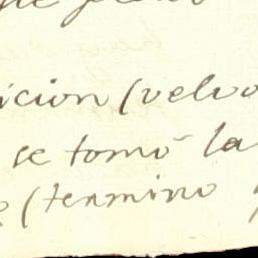 icion (velvo
se tomó la
(termino